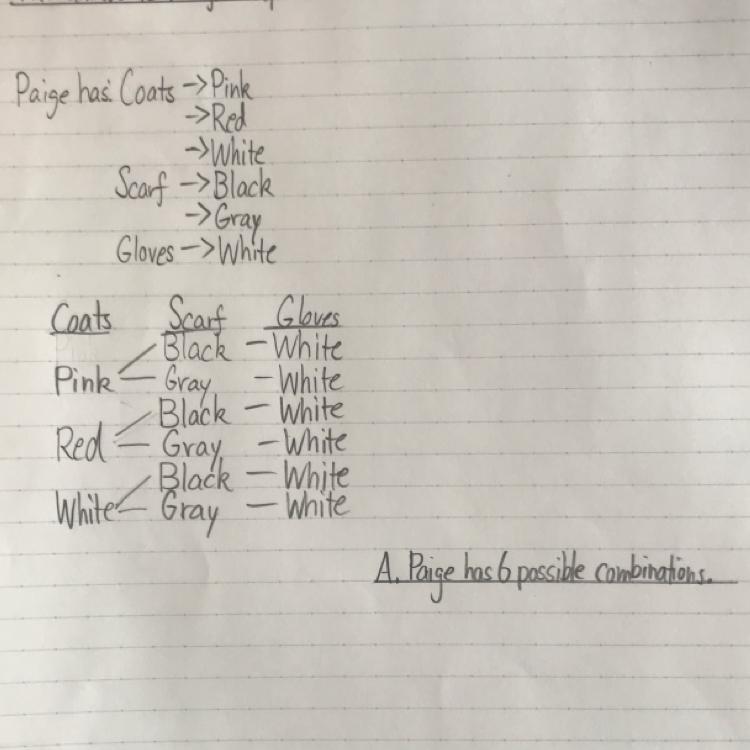 Paige has: Coats → Pink
→ Red
→ White
Scarf → Black
→ Gray
Gloves → White
Coats Scarf Gloves
Black – White
Pink – Gray – White
Black – White
Red – Gray – White
Black – White
White – Gray – White
A. Paige has 6 possible combinations.